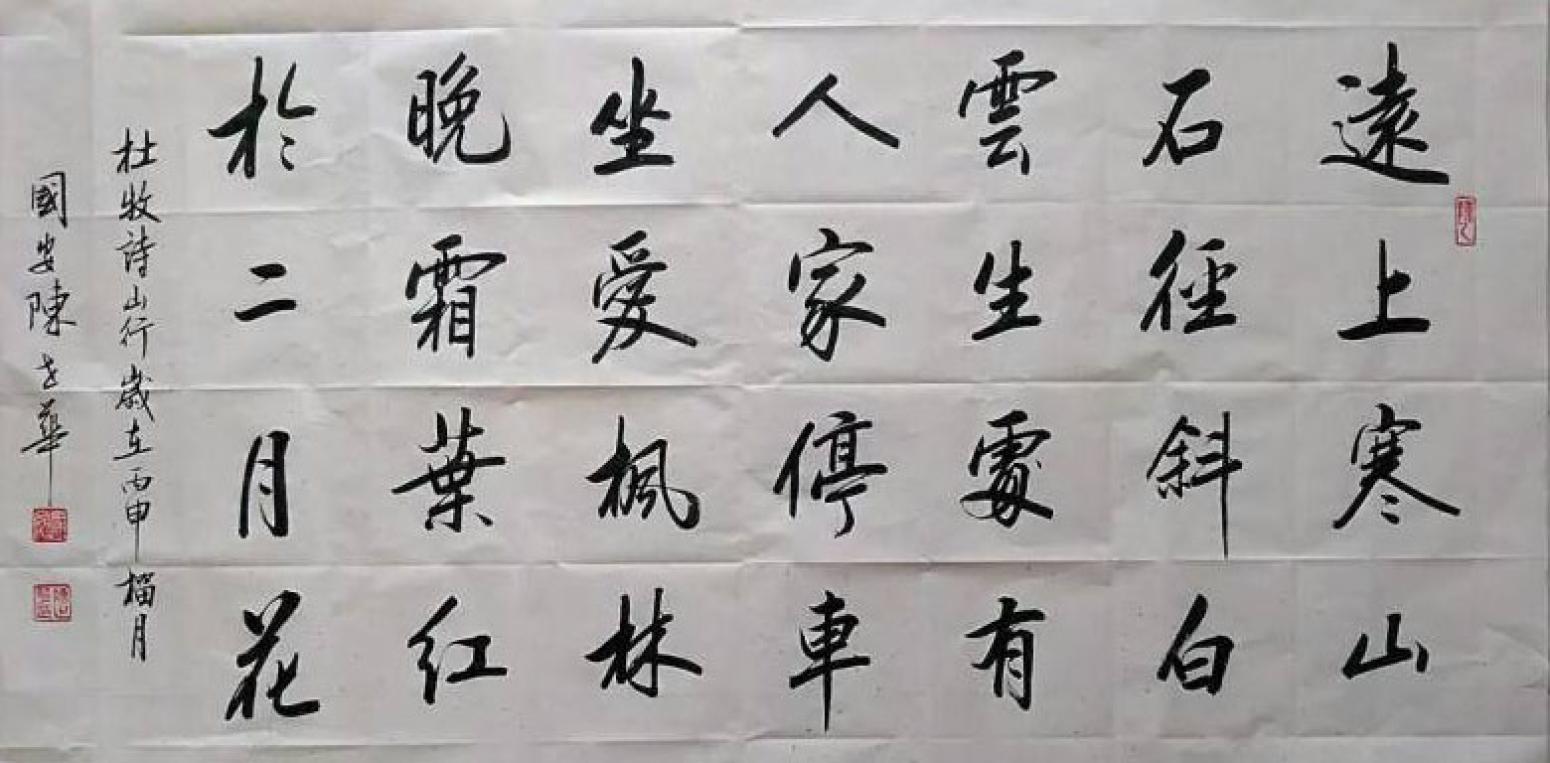 遠上寒山
石徑斜白
雲生處有
人家停車
坐愛楓林
晚霜葉红
於二月花
杜牧詩山行歲在丙申榴月
國安陳志華